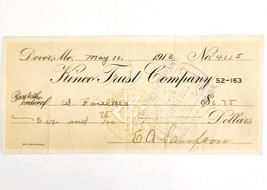 Dover, Mo. May 10. 1913 No. 4115
Kinco Trust Company 52-163
Pay to the order of $6.75
Six and 75/100 Dollars
E A Sampson